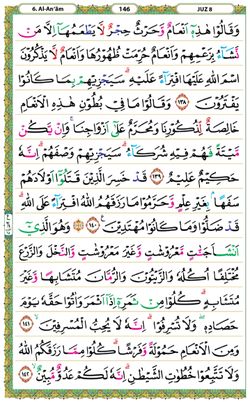 6. Al-An'ām 146 JUZ 8
وَقَالُوا هَٰذِهِ أَنْعَامٌ وَحَرْثٌ حِجْرٌ لَّا يَطْعَمُهَا إِلَّا مَن
نَّشَاءُ بِزَعْمِهِمْ وَأَنْعَامٌ حُرِّمَتْ ظُهُورُهَا وَأَنْعَامٌ لَّا يَذْكُرُونَ
اسْمَ اللَّهِ عَلَيْهَا افْتِرَاءً عَلَيْهِ ۚ سَيَجْزِيهِم بِمَا كَانُوا
يَفْتَرُونَ ﴿١٣٨﴾ وَقَالُوا مَا فِي بُطُونِ هَٰذِهِ الْأَنْعَامِ
خَالِصَةٌ لِّذُكُورِنَا وَمُحَرَّمٌ عَلَىٰ أَزْوَاجِنَا ۖ وَإِن يَكُن
مَّيْتَةً فَهُمْ فِيهِ شُرَكَاءُ ۚ سَيَجْزِيهِمْ وَصْفَهُمْ ۚ إِنَّهُ
حَكِيمٌ عَلِيمٌ ﴿١٣٩﴾ قَدْ خَسِرَ الَّذِينَ قَتَلُوا أَوْلَادَهُمْ
سَفَهًا بِغَيْرِ عِلْمٍ وَحَرَّمُوا مَا رَزَقَهُمُ اللَّهُ افْتِرَاءً عَلَى اللَّهِ ۚ
قَدْ ضَلُّوا وَمَا كَانُوا مُهْتَدِينَ ﴿١٤٠﴾ وَهُوَ الَّذِي
أَنشَأَ جَنَّاتٍ مَّعْرُوشَاتٍ وَغَيْرَ مَعْرُوشَاتٍ وَالنَّخْلَ وَالزَّرْعَ
مُخْتَلِفًا أُكُلُهُ وَالزَّيْتُونَ وَالرُّمَّانَ مُتَشَابِهًا وَغَيْرَ
مُتَشَابِهٍ ۚ كُلُوا مِن ثَمَرِهِ إِذَا أَثْمَرَ وَآتُوا حَقَّهُ يَوْمَ
حَصَادِهِ ۖ وَلَا تُسْرِفُوا ۚ إِنَّهُ لَا يُحِبُّ الْمُسْرِفِينَ ﴿١٤١﴾
وَمِنَ الْأَنْعَامِ حَمُولَةً وَفَرْشًا ۚ كُلُوا مِمَّا رَزَقَكُمُ اللَّهُ
وَلَا تَتَّبِعُوا خُطُوَاتِ الشَّيْطَانِ ۚ إِنَّهُ لَكُمْ عَدُوٌّ مُّبِينٌ ﴿١٤٢﴾